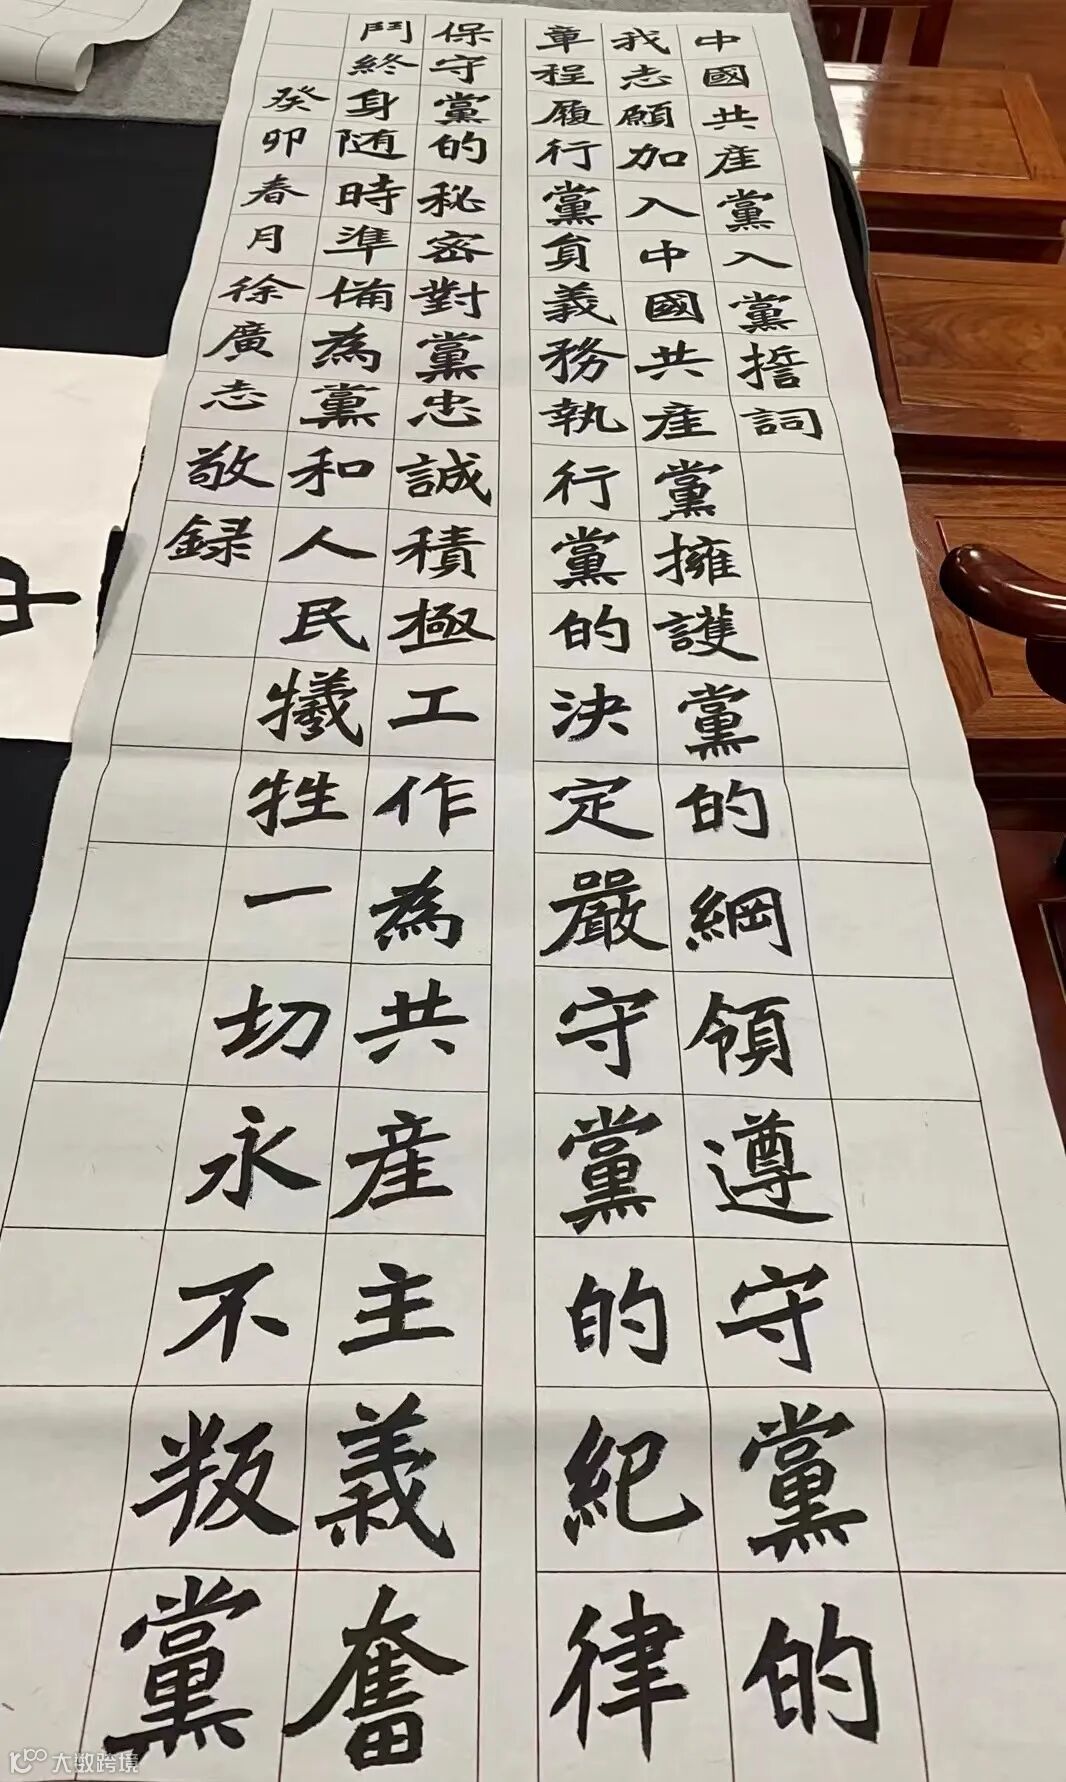 中國共産黨入黨誓詞
我志願加入中國共産黨擁護黨的綱領遵守黨的
章程履行黨員義務執行黨的決定嚴守黨的紀律
保守黨的秘密對黨忠誠積極工作為共産主義奮
鬥終身随時準備為黨和人民犧牲一切永不叛黨
癸卯春月徐廣志敬録
大数跨境